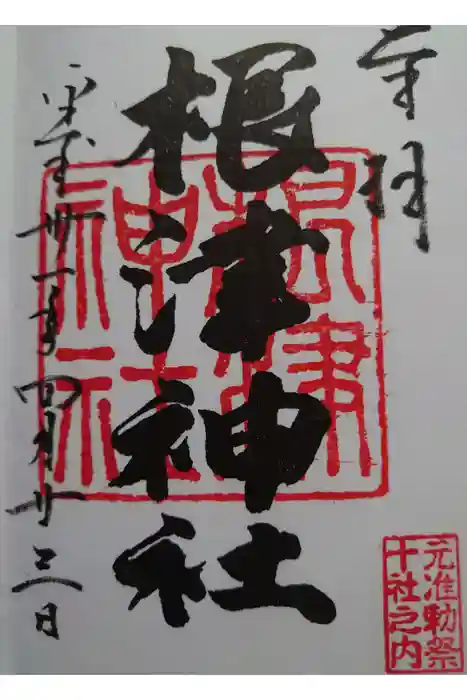 奉拝
根津神社
平成卅一年四月廿三日
根津
神社
元准勅祭
十社之内